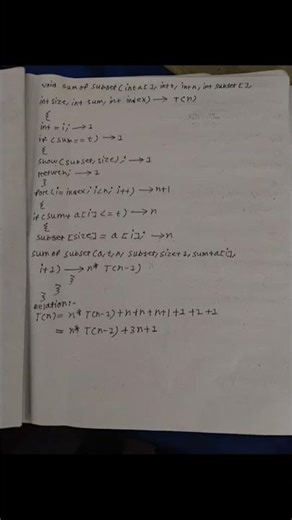 void sum of subset (int a[], int t, int n, int subset[],
int size, int sum, int index) → T(n)
{
int = i; → 1
if (sum == t) → 1
{
show (subset, size); → 1
return; → 1
}
for (i = index; i<n; i++) → n+1
{
if (sum + a[i] <= t) → n
{
subset [size] = a[i]; → n
sum of subset (a, t, n, subset, size+1, sum+a[i],
i+1) → n* T(n-1)
}
}
}
Relation:-
T(n) = n* T(n-1) + n + n + n+1 + 1 + 1 + 1
= n* T(n-1) + 3n + 1